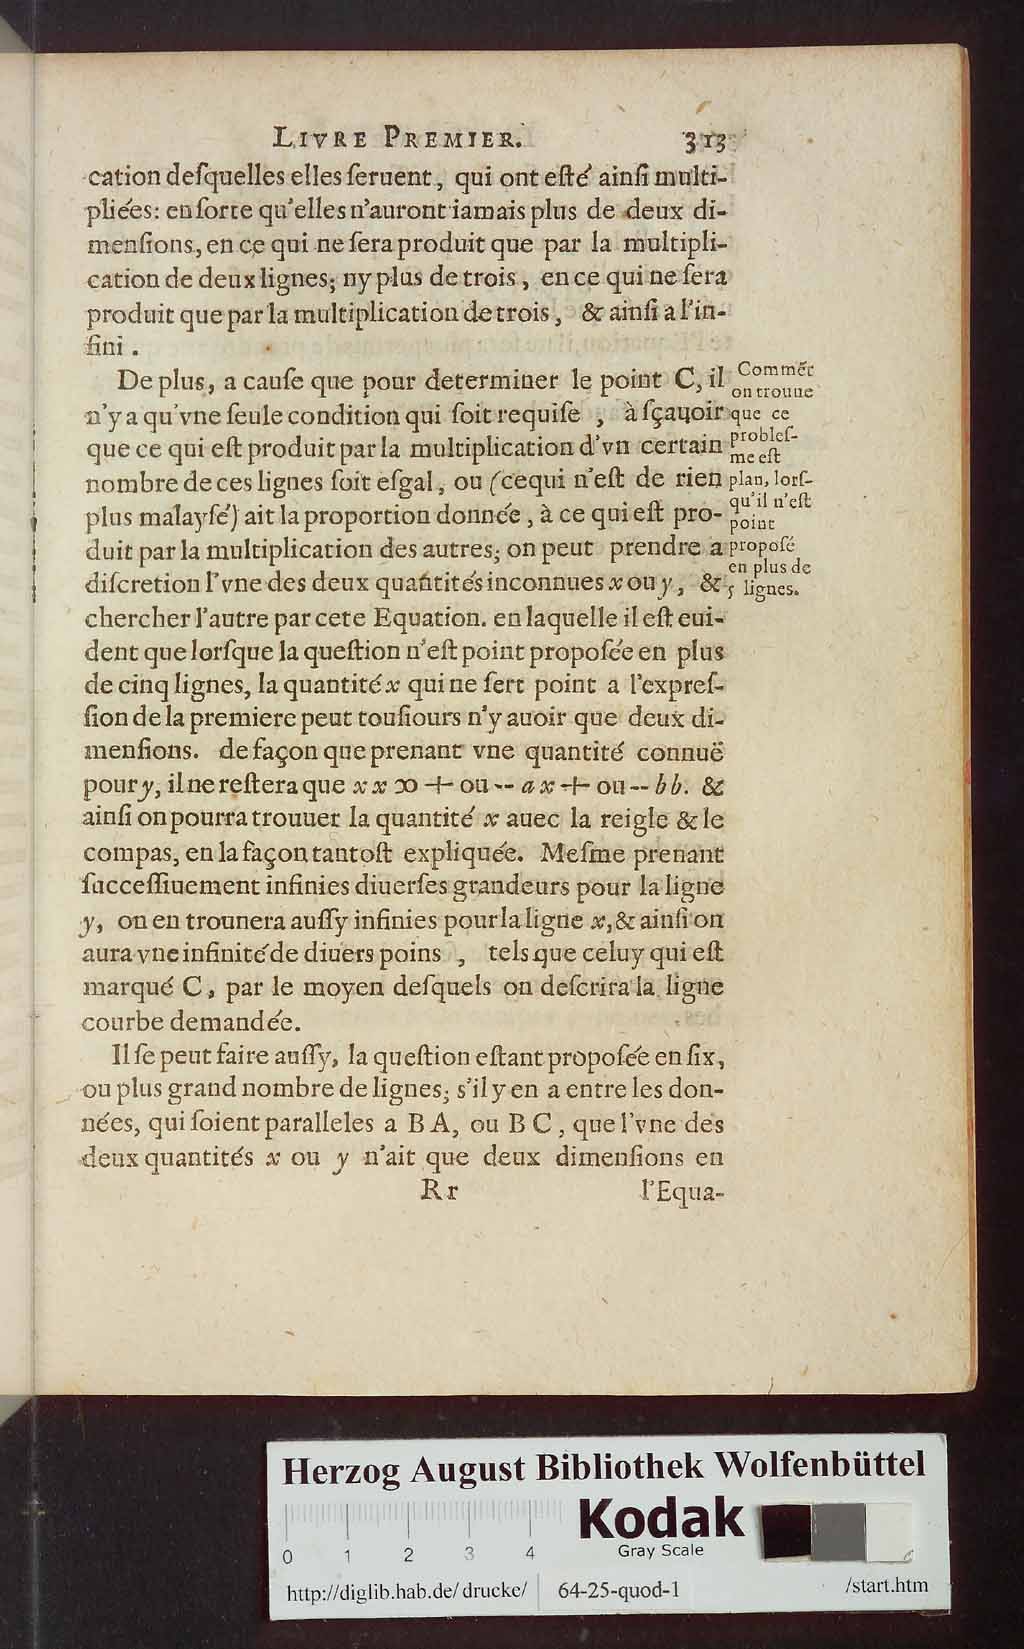 LIVRE PREMIER. 313
cation deſquelles elles ſeruent, qui ont eſté ainſi multi-
pliées: en ſorte qu'elles n'auront iamais plus de deux di-
menſions, en ce qui ne ſera produit que par la multipli-
cation de deux lignes; ny plus de trois, en ce qui ne ſera
produit que par la multiplication de trois, & ainſi a l'in-
fini.
De plus, a cauſe que pour determiner le point C, il
n'y a qu'vne ſeule condition qui ſoit requiſe, à ſçauoir
que ce qui eſt produit par la multiplication d'vn certain
nombre de ces lignes ſoit eſgal, ou (ce qui n'eſt de rien
plus malayſé) ait la proportion donnée, à ce qui eſt pro-
duit par la multiplication des autres; on peut prendre a
diſcretion l'vne des deux quantités inconnues x ou y, &
chercher l'autre par cete Equation. en laquelle il eſt eui-
dent que lorſque la queſtion n'eſt point propoſée en plus
de cinq lignes, la quantité x qui ne ſert point a l'expreſ-
ſion de la premiere peut touſiours n'y auoir que deux di-
menſions. de façon que prenant vne quantité connuë
pour y, il ne reſtera que x x ꝏ + ou -- a x + ou -- b b. &
ainſi on pourra trouuer la quantité x auec la reigle & le
compas, en la façon tantoſt expliquée. Meſme prenant
ſucceſſiuement infinies diuerſes grandeurs pour la ligne
y, on en trouuera auſſy infinies pour la ligne x, & ainſi on
aura vne infinité de diuers poins, tels que celuy qui eſt
marqué C, par le moyen deſquels on deſcrira la ligne
courbe demandée.
Il ſe peut faire auſſy, la queſtion eſtant propoſée en ſix,
ou plus grand nombre de lignes; s'il y en a entre les don-
nées, qui ſoient paralleles a BA, ou BC, que l'vne des
deux quantités x ou y n'ait que deux dimenſions en
Rr l'Equa-
Commēt
on trouue
que ce
probleſ-
me eſt
plan, lorſ-
qu'il n'eſt
point
propoſé
en plus de
5 lignes.
Herzog August Bibliothek Wolfenbüttel
0 1 2 3 4
Kodak
Gray Scale
http://diglib.hab.de/drucke/ 64-25-quod-1 /start.htm